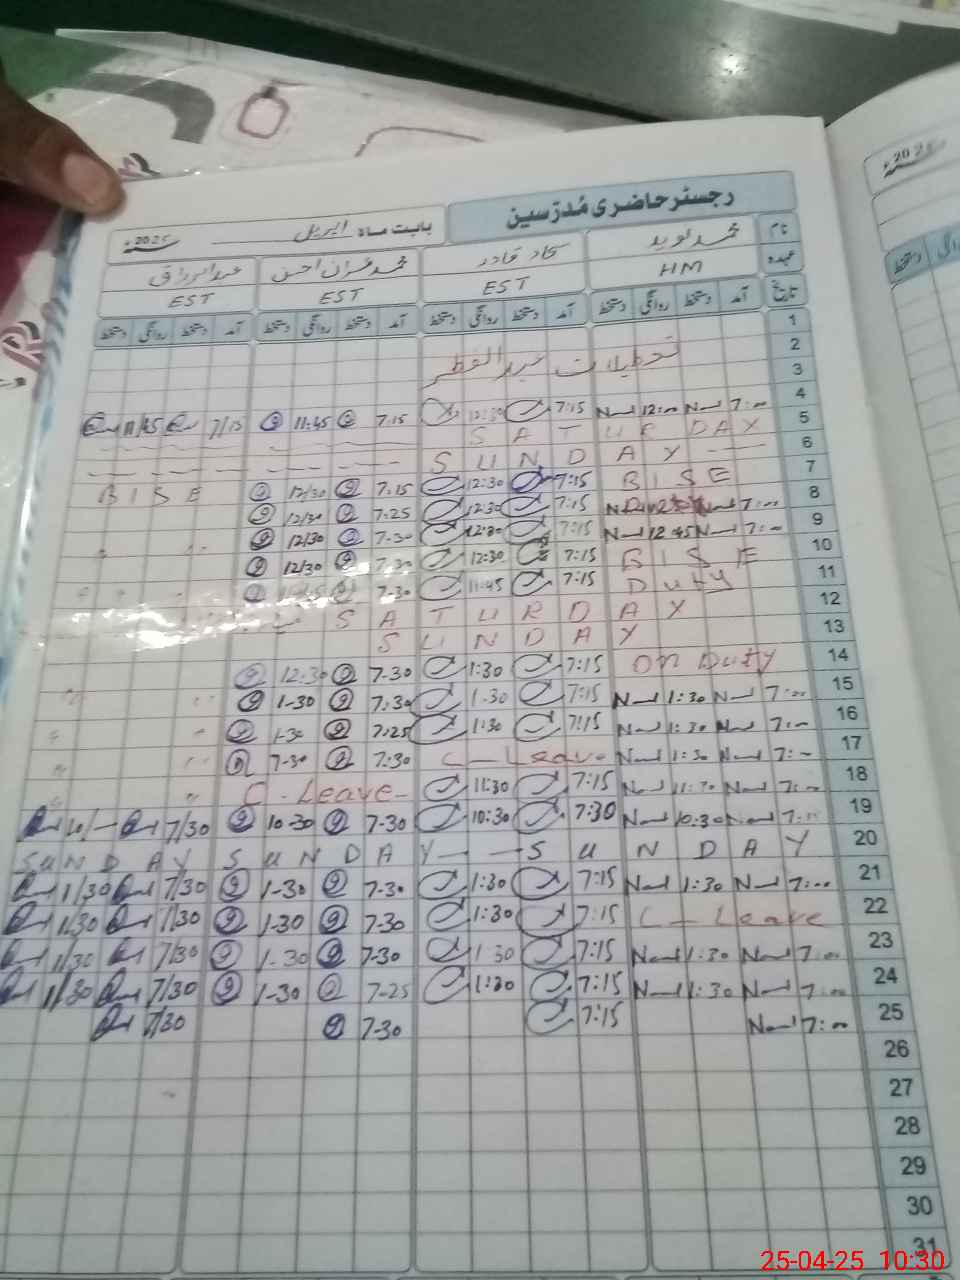 رجسٹر حاضری مُدرّسین
بابت ماہ اپریل 2025ء
نام محمد نوید سجاد قادر محمد عمران احسن عبدالرزاق
عہدہ HM EST EST EST
تاریخ آمد دستخط روانگی دستخط آمد دستخط روانگی دستخط آمد دستخط روانگی دستخط آمد دستخط روانگی دستخط
1
2 تعطیلات عید الفطر
3
4 7:00 12:00 7:15 12:30 7:15 11:45 7/15 11/45
5 SATURDAY
6 SUNDAY
7 BISE 7:15 12:30 7.15 12/30 BISE
8 7:00 7:15 12:30 7.25 12/30
9 7:00 12.45 7:15 12:30 7-30 12/30
10 BISE 7:15 12:30 7.30 12/30
11 Duty 7:15 11:45 7-30
12 SATURDAY
13 SUNDAY
14 On Duty 7:15 1:30 7-30 12.30
15 7:00 1:30 7:15 1.30 7.30 1-30
16 7:00 1:30 7:15 1:30 7.25 1-30
17 7:00 1:30 C-Leave 7:30 7-30
18 7:00 11:30 7:15 11:30 C-Leave
19 7:00 10:30 7:30 10:30 7-30 10-30 7/30
20 SUNDAY SUNDAY SUNDAY
21 7:00 1:30 7:15 1:30 7-30 1-30 7/30 1/30
22 C-Leave 7:15 1:30 7-30 1-30 7/30 1/30
23 7:00 1:30 7:15 1:30 7-30 1-30 7/30 1/30
24 7:00 1:30 7:15 1:30 7-25 1-30 7/30 1/30
25 7:00 7:15 7-30 7/30
26
27
28
29
30
31
2025ء
روانگی دستخط
25-04-25 10:30